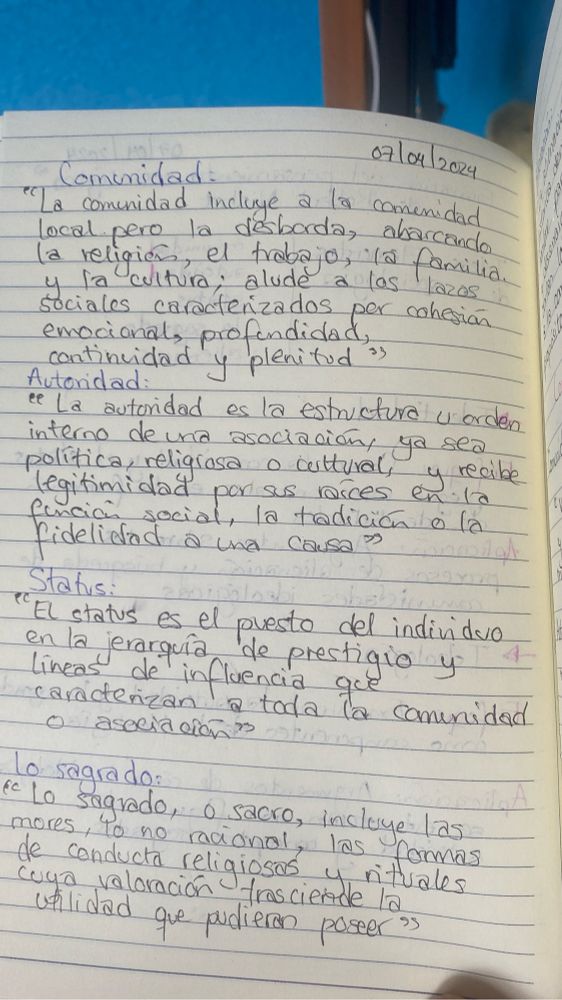 07/04/2024
Comunidad:
"La comunidad incluye a la comunidad
local pero la desborda, abarcando
la religión, el trabajo, la familia
y la cultura; alude a los lazos
sociales caracterizados por cohesión
emocional, profundidad,
continuidad y plenitud"
Autoridad:
"La autoridad es la estructura u orden
interno de una asociación, ya sea
política, religiosa o cultural, y recibe
legitimidad por sus raíces en la
función social, la tradición o la
fidelidad a una causa"
Status:
"El status es el puesto del individuo
en la jerarquía de prestigio y
líneas de influencia que
caracterizan a toda la comunidad
o asociación"
Lo sagrado:
"Lo sagrado, o sacro, incluye las
mores, lo no racional, las formas
de conducta religiosas y rituales
cuya valoración trasciende la
utilidad que pudieran poseer"